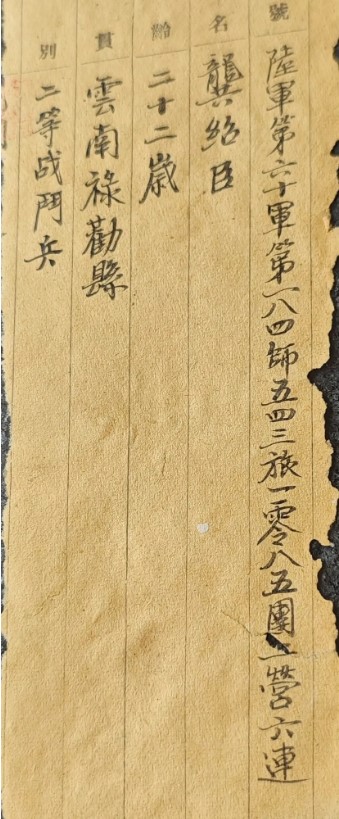 號
陸軍第六十軍第一八四師五四三旅一零八五團二營六連
名
龔紹臣
齡
二十二歲
貫
雲南祿勸縣
別
二等战鬥兵